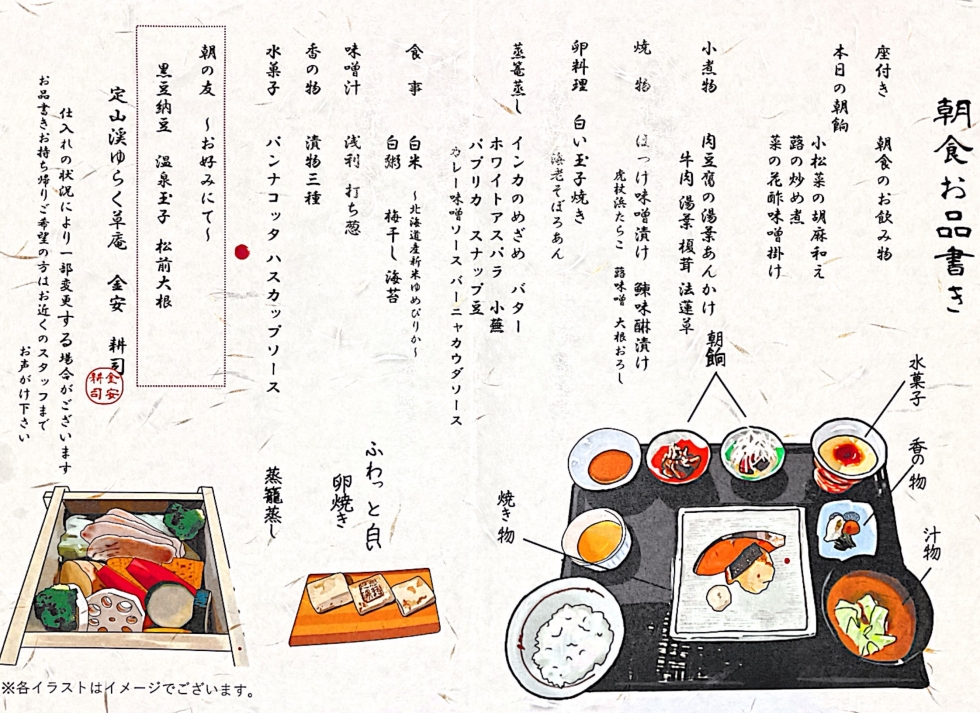 朝食お品書き
座付き 朝食のお飲み物
本日の朝餉
小松菜の胡麻和え
蕗の炒め煮
菜の花酢味噌掛け
小煮物 肉豆腐の湯葉あんかけ
牛肉 湯葉 榎茸 法蓮草
焼 物 ほっけ味噌漬け 鰊味醂漬け
虎杖浜たらこ 蕗味噌 大根おろし
卵料理 白い玉子焼き
海老そぼろあん
蒸篭蒸し インカのめざめ バター
ホワイトアスパラ 小蕪
パプリカ スナップ豆
カレー味噌ソース バーニャカウダソース
食 事 白米 ～北海道産新米ゆめぴりか～
白粥 梅干し 海苔
味噌汁 浅利 打ち葱
香の物 漬物三種
水菓子 パンナコッタ ハスカップソース
朝の友 ～お好みにて～
黒豆納豆 温泉玉子 松前大根
定山渓ゆらく草庵 金安 耕司
金安
耕司
仕入れの状況により一部変更する場合がございます
お品書きお持ち帰りご希望の方はお近くのスタッフまで
お声がけ下さい
朝餉
水菓子
香の物
汁物
焼き物
ふわっと
卵焼き
蒸籠蒸し
※各イラストはイメージでございます。